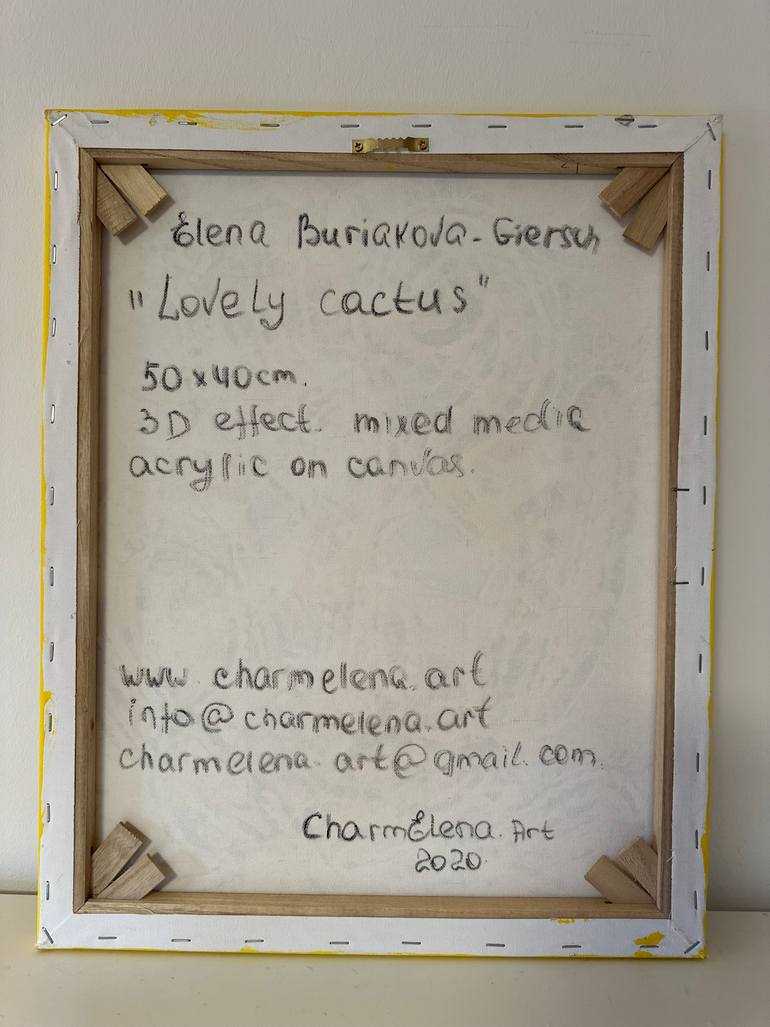 Elena Buriakova-Giersch
"Lovely cactus"
50x40cm.
3D effect. mixed media
acrylic on canvas.
www.charmelena.art
info@charmelena.art
charmelena.art@gmail.com.
CharmElena.Art
2020